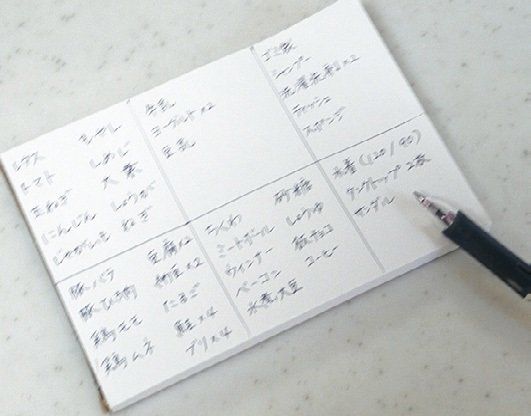 レタス
トマト
玉ねぎ
にんじん
じゃがいも
もやし
しめじ
大葉
しょうが
ねぎ
牛乳
ヨーグルト×2
豆乳
ゴミ袋
シャンプー
洗濯洗剤×2
ティッシュ
スポンジ
豚バラ
豚ひき肉
鶏もも
鶏ムネ
豆腐×2
納豆×2
たまご
鮭×4
ブリ×4
ちくわ
ミートボール
ウィンナー
ベーコン
水煮大豆
砂糖
しょうゆ
板チョコ
コーヒー
水着(120/90)
タンクトップ 2枚
サンダル